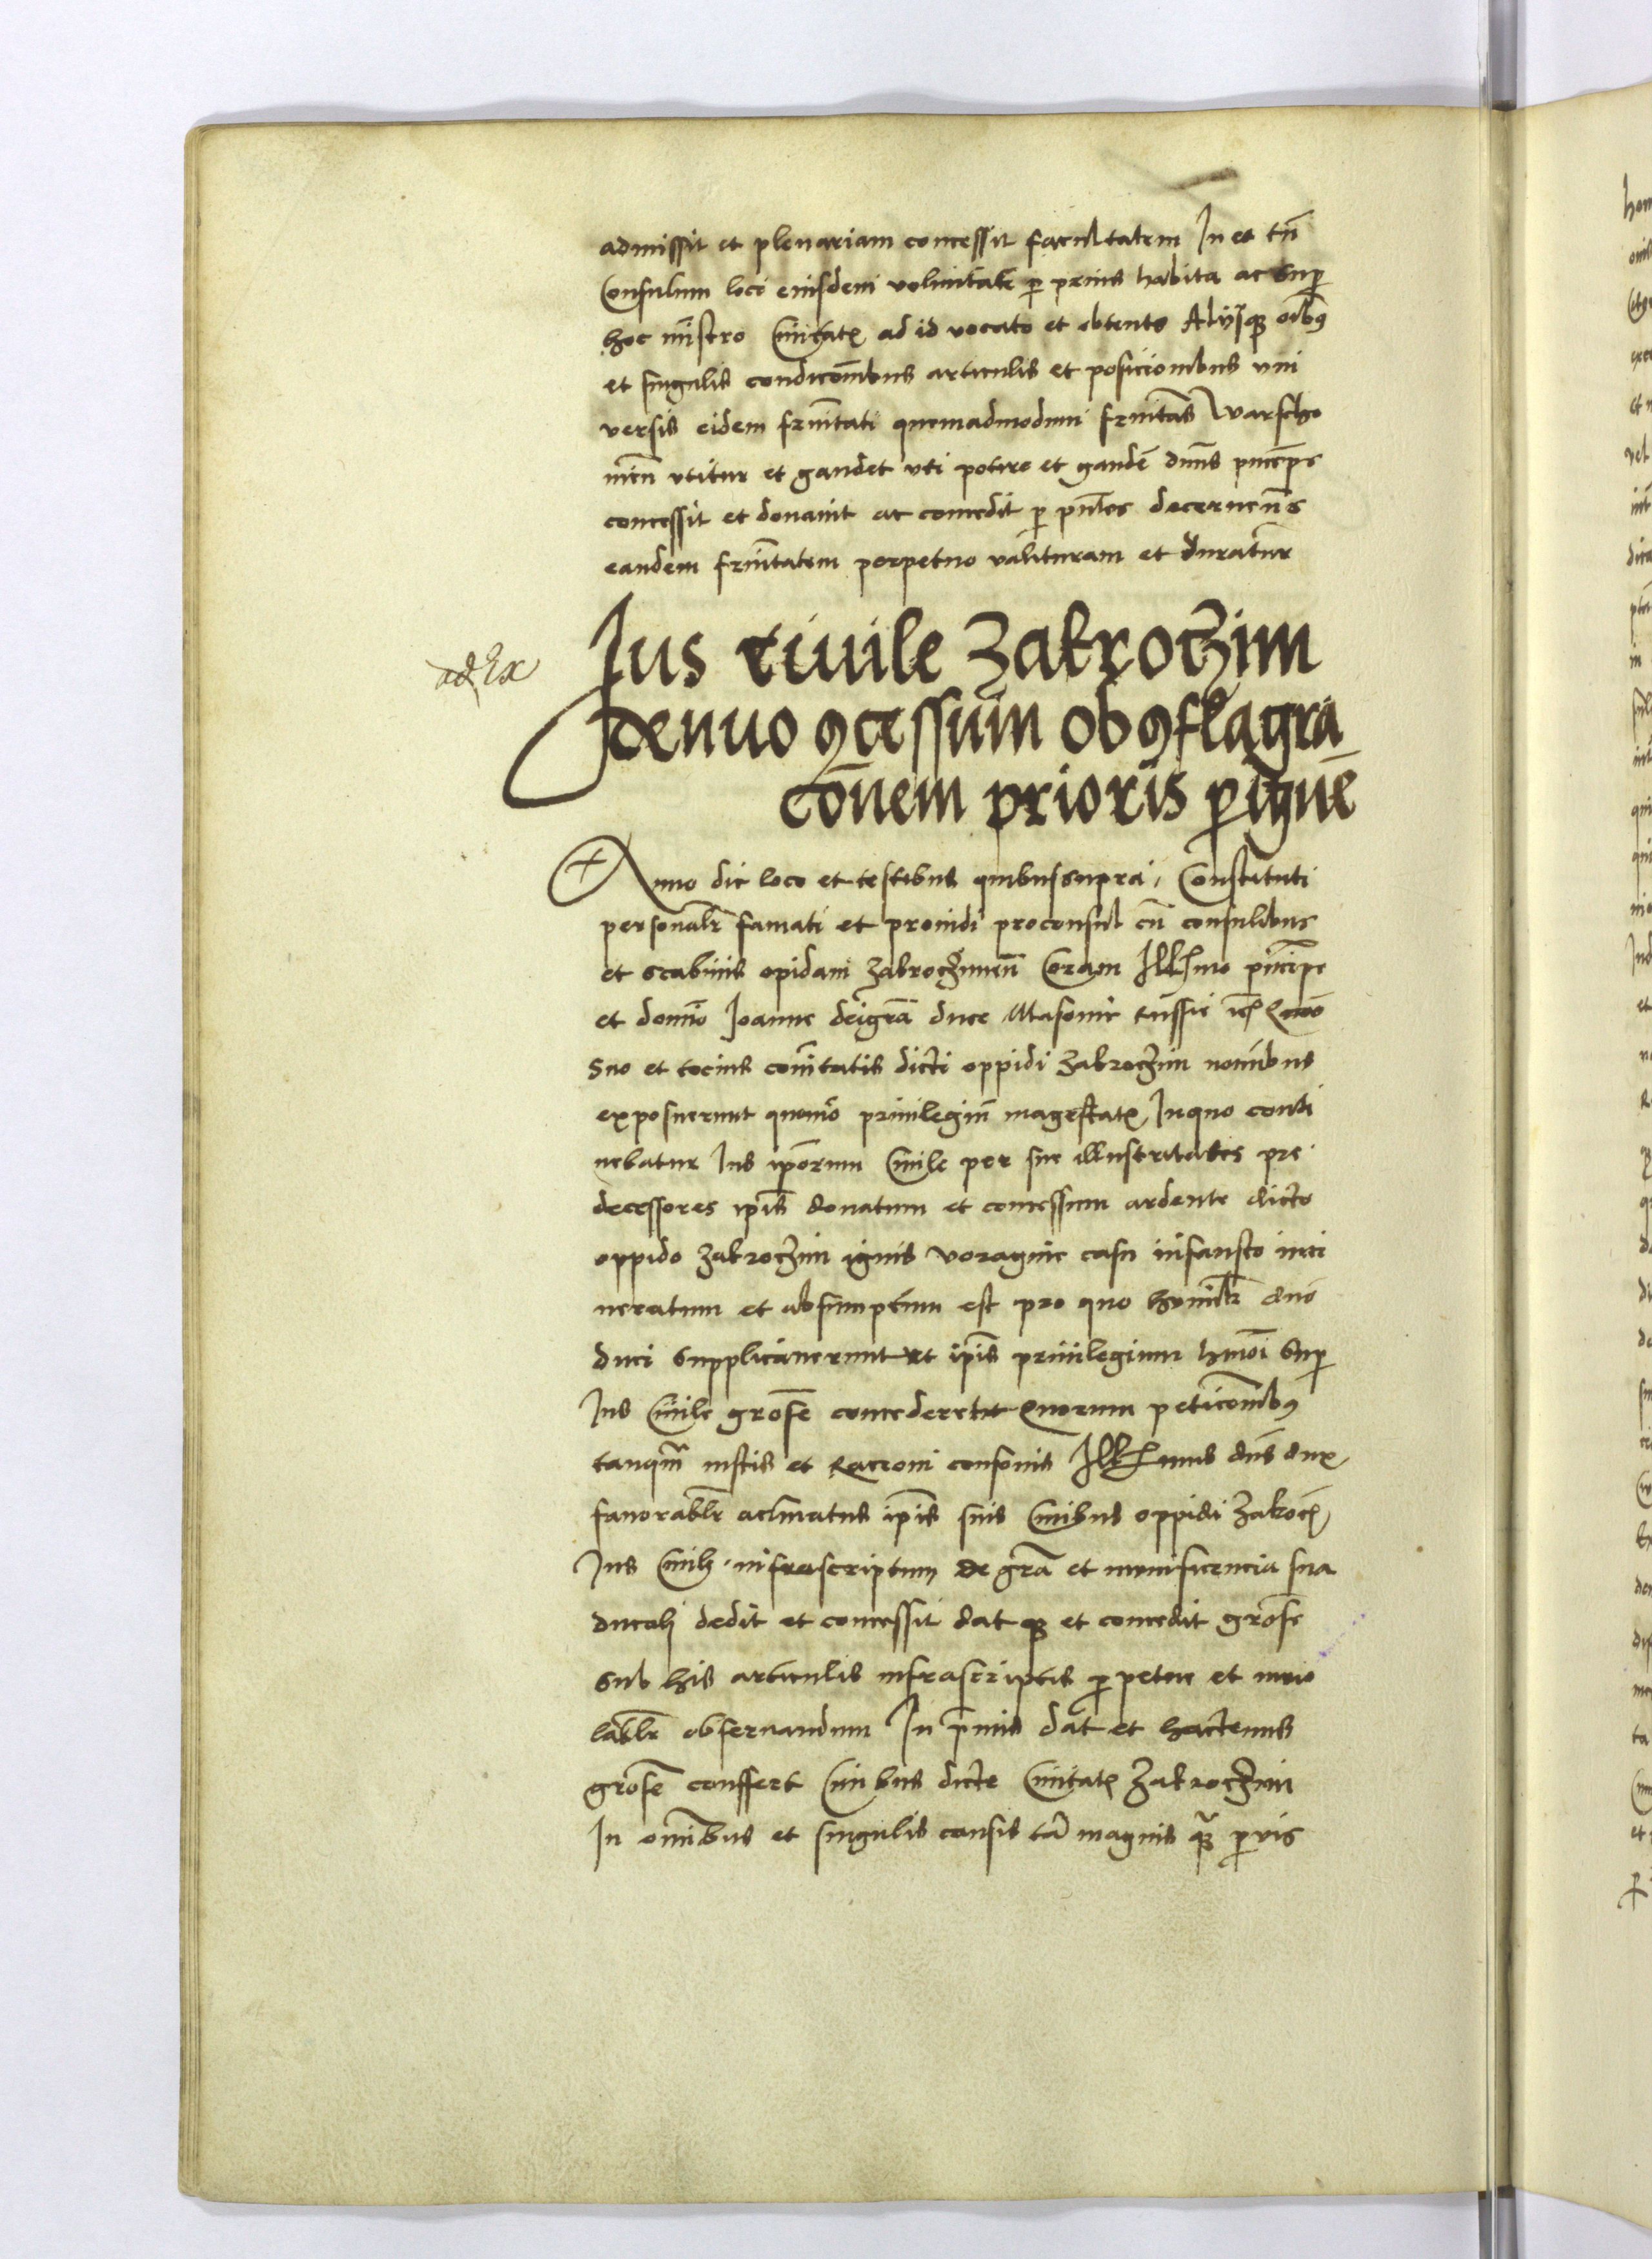 admissit et plenariam concessit facultatem In et tn̄
Consulum loci eiusdem volu̅tate p prius habita ac sup
hoc mīstro Ciuitatꝭ ad id vocato et obtento Alijsqꝫ oībꝰ
et singulis condicōnibus articulis et posicionibus vni
versis eidem frnītati quemadmodum frnitas Warscho
uien̄ vtitur et gaudet vti potire et gaudē dūus prīceps
concessit et donauit ac concedit p pn̄tes decernens
eandem frnītatem perpetuo valituram et duratur
ad Ex
Ius ciuile Zakroczim
denuo ꝯcessum ob ꝯflagra
cōnem prioris p ignē
Anno die loco et testibus quibus supra, Constituti
personalr̄ famati et prouidi proconsul cū consulibus
et scabinis opidani Zakroczimien̄ Coram Illꝭmo prīcipe
et domīo Joanne dei grā duce Masouie Russie
suo et tocius com̄itatis dicti oppidi Zakroczim nomībus
exposuerunt quomō priuilegiū magestatꝭ, In quo conti
nebatur Ius ipōrum Ciuile per sue illustritatis pre
decessores ipīs donatum et concessum ardente dicto
oppido Zakroczim ignis voragine casu infausto inci
neratum et absumptum est pro quo humilr̄ dn̄o
duci supplicauerunt vt ipīs priuilegium hmōi sup
Ius Ciuile grōse concederetur Quorum peticōnibꝰ
tanqm̄ iustis et Racioni consonis Illꝭmus dn̄s dux
fauorablr̄ acliuatus ipīs suis Ciuibus oppidi Zakoczꝭ
Ius Ciuile infrascriptum de grā et munificencia sua
ducali dedit et concessit datqꝫ et concedit grōse
sub his articulis infrascriptis ppetue et inuio
lablr̄ obseruandum In p̄mis dat et hactenus
grōse conffert Ciuibus dicte Ciuitatꝭ Zakroczim
In omībus et singulis causis tā magnis qꝫ puis